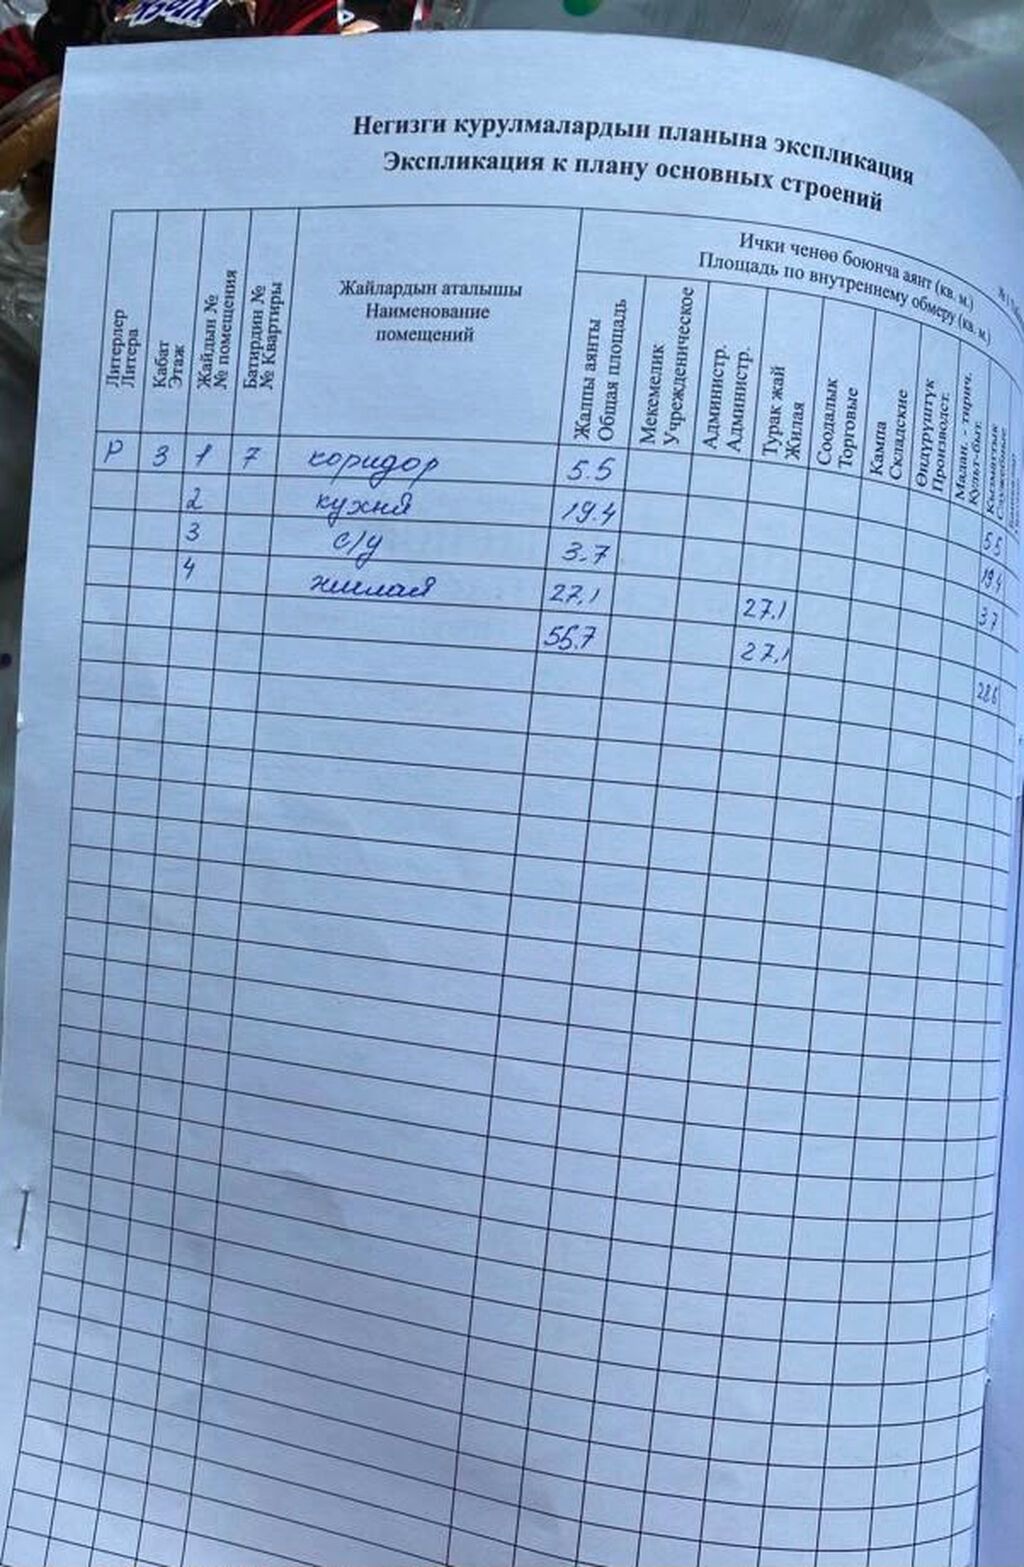 Негизги курулмалардын планына экспликация
Экспликация к плану основных строений
Литерлер
Литера
Кабат
Этаж
Жайдын №
№ помещения
Батирдин №
№ Квартиры
Жайлардын аталышы
Наименование
помещений
Ички ченөө боюнча аянт (кв. м.)
Площадь по внутреннему обмеру (кв. м.)
Жалпы аянты
Общая площадь
Мекемелик
Учрежденическое
Администр.
Администр.
Турак жай
Жилая
Соодалык
Торговые
Кампа
Складские
Өндүрүштүк
Производст.
Мадан. - тирич.
Культ-быт.
Кызматтык
Служебные
Р 3 1 7 коридор 5.5 5.5
2 кухня 19.4 19.4
3 с/у 3.7 3.7
4 жилая 27,1 27.1
55.7 27,1 28.6